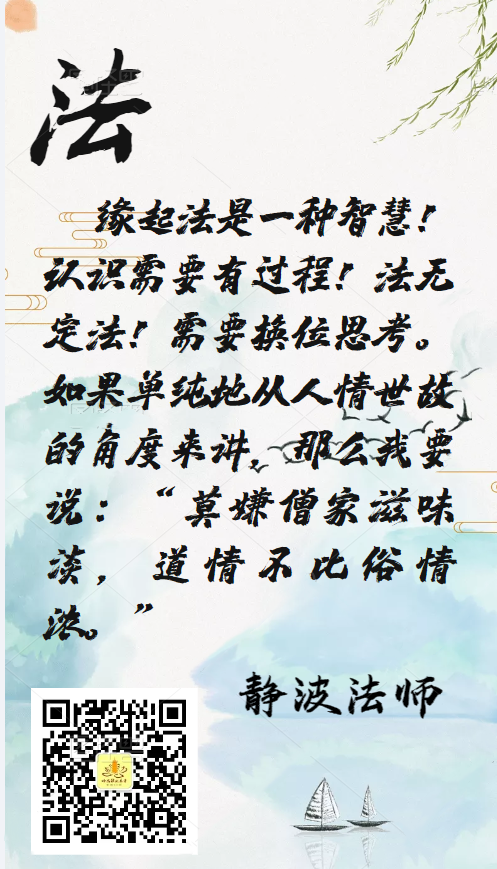 法
缘起法是一种智慧!
认识需要有过程!法无
定法!需要换位思考。
如果单纯地从人情世故
的角度来讲,那么我要
说:“莫嫌僧家滋味
淡,道情不比俗情
浓。”
静波法师